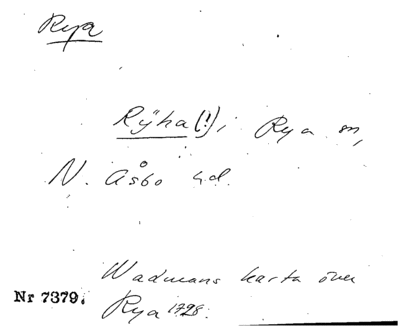 Rya
Rÿha (!), i Rya sn,
N. Åsbo hd.
Wadmans karta över
Nr 7379.
Rya 1728.